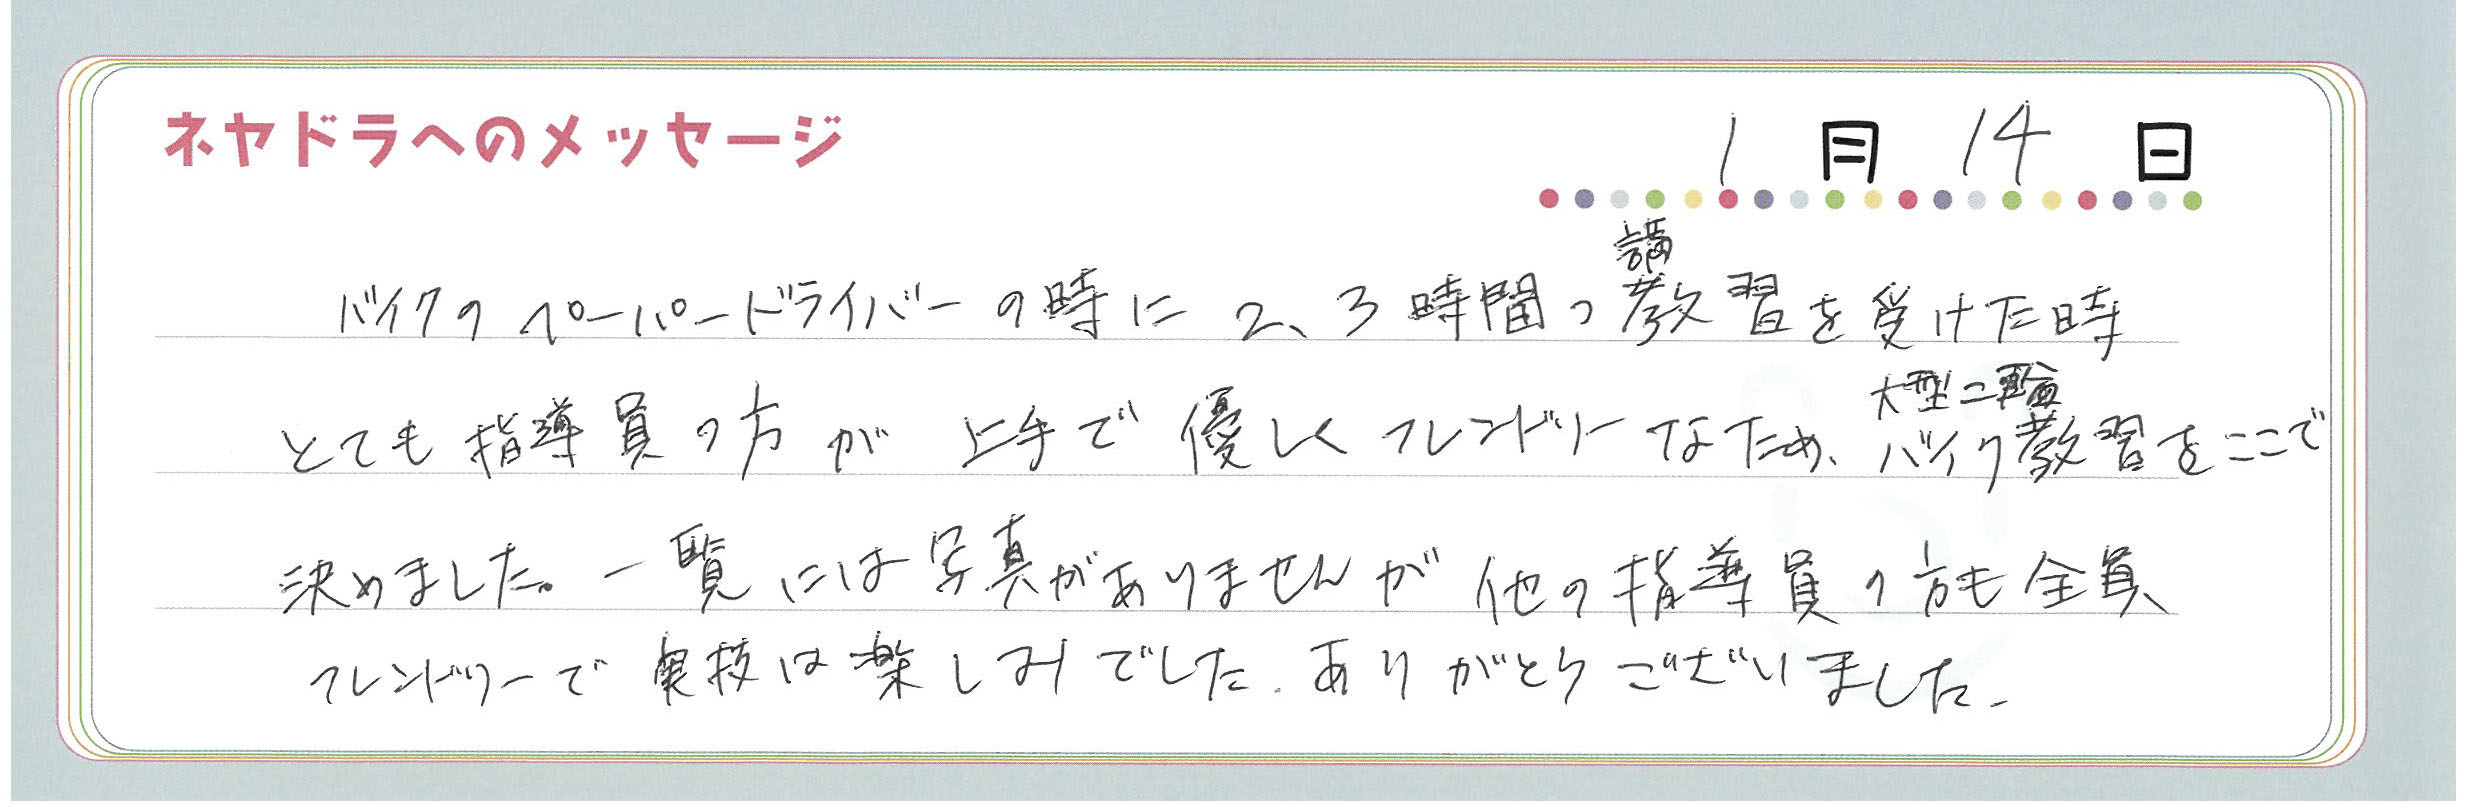 ネヤドラへのメッセージ
1月14日
講
バイクのペーパードライバーの時に2、3時間の教習を受けた時
大型二輪
とても指導員の方が上手で優しくフレンドリーなため、バイク教習をここで
決めました。一覧には写真がありませんが他の指導員の方も全員
フレンドリーで実技は楽しみでした。ありがとうございました。